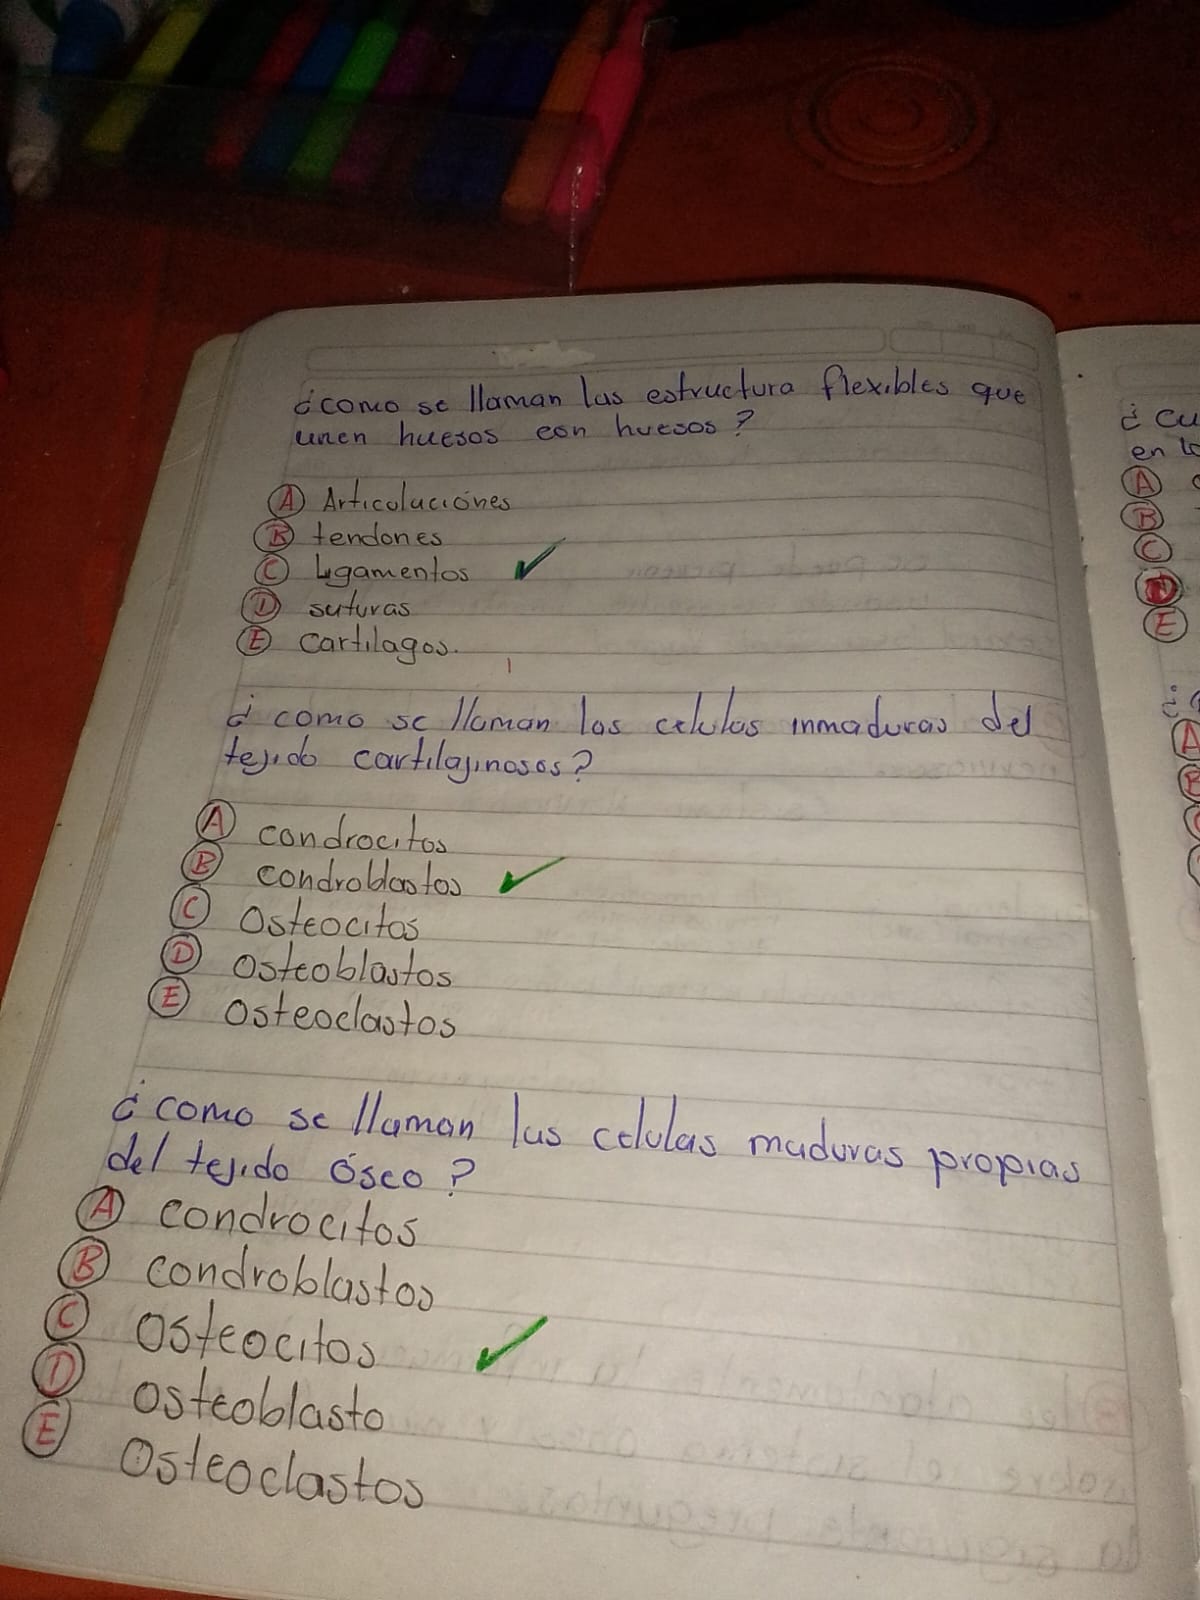 ¿como se llaman las estructura flexibles que
unen huesos con huesos?
A Articulaciones
B tendones
C Ligamentos ✓
D suturas
E cartilagos.
¿como se llaman las celulas inmaduras del
tejido cartilajinosos?
A condrocitos
B condroblastos ✓
C Osteocitos
D Osteoblastos
E Osteoclastos
¿como se llaman las celulas maduras propias
del tejido Óseo?
A condrocitos
B condroblastos
C Osteocitos ✓
D Osteoblasto
E Osteoclastos
¿
en
A
B
C
D
E
¿
A
B